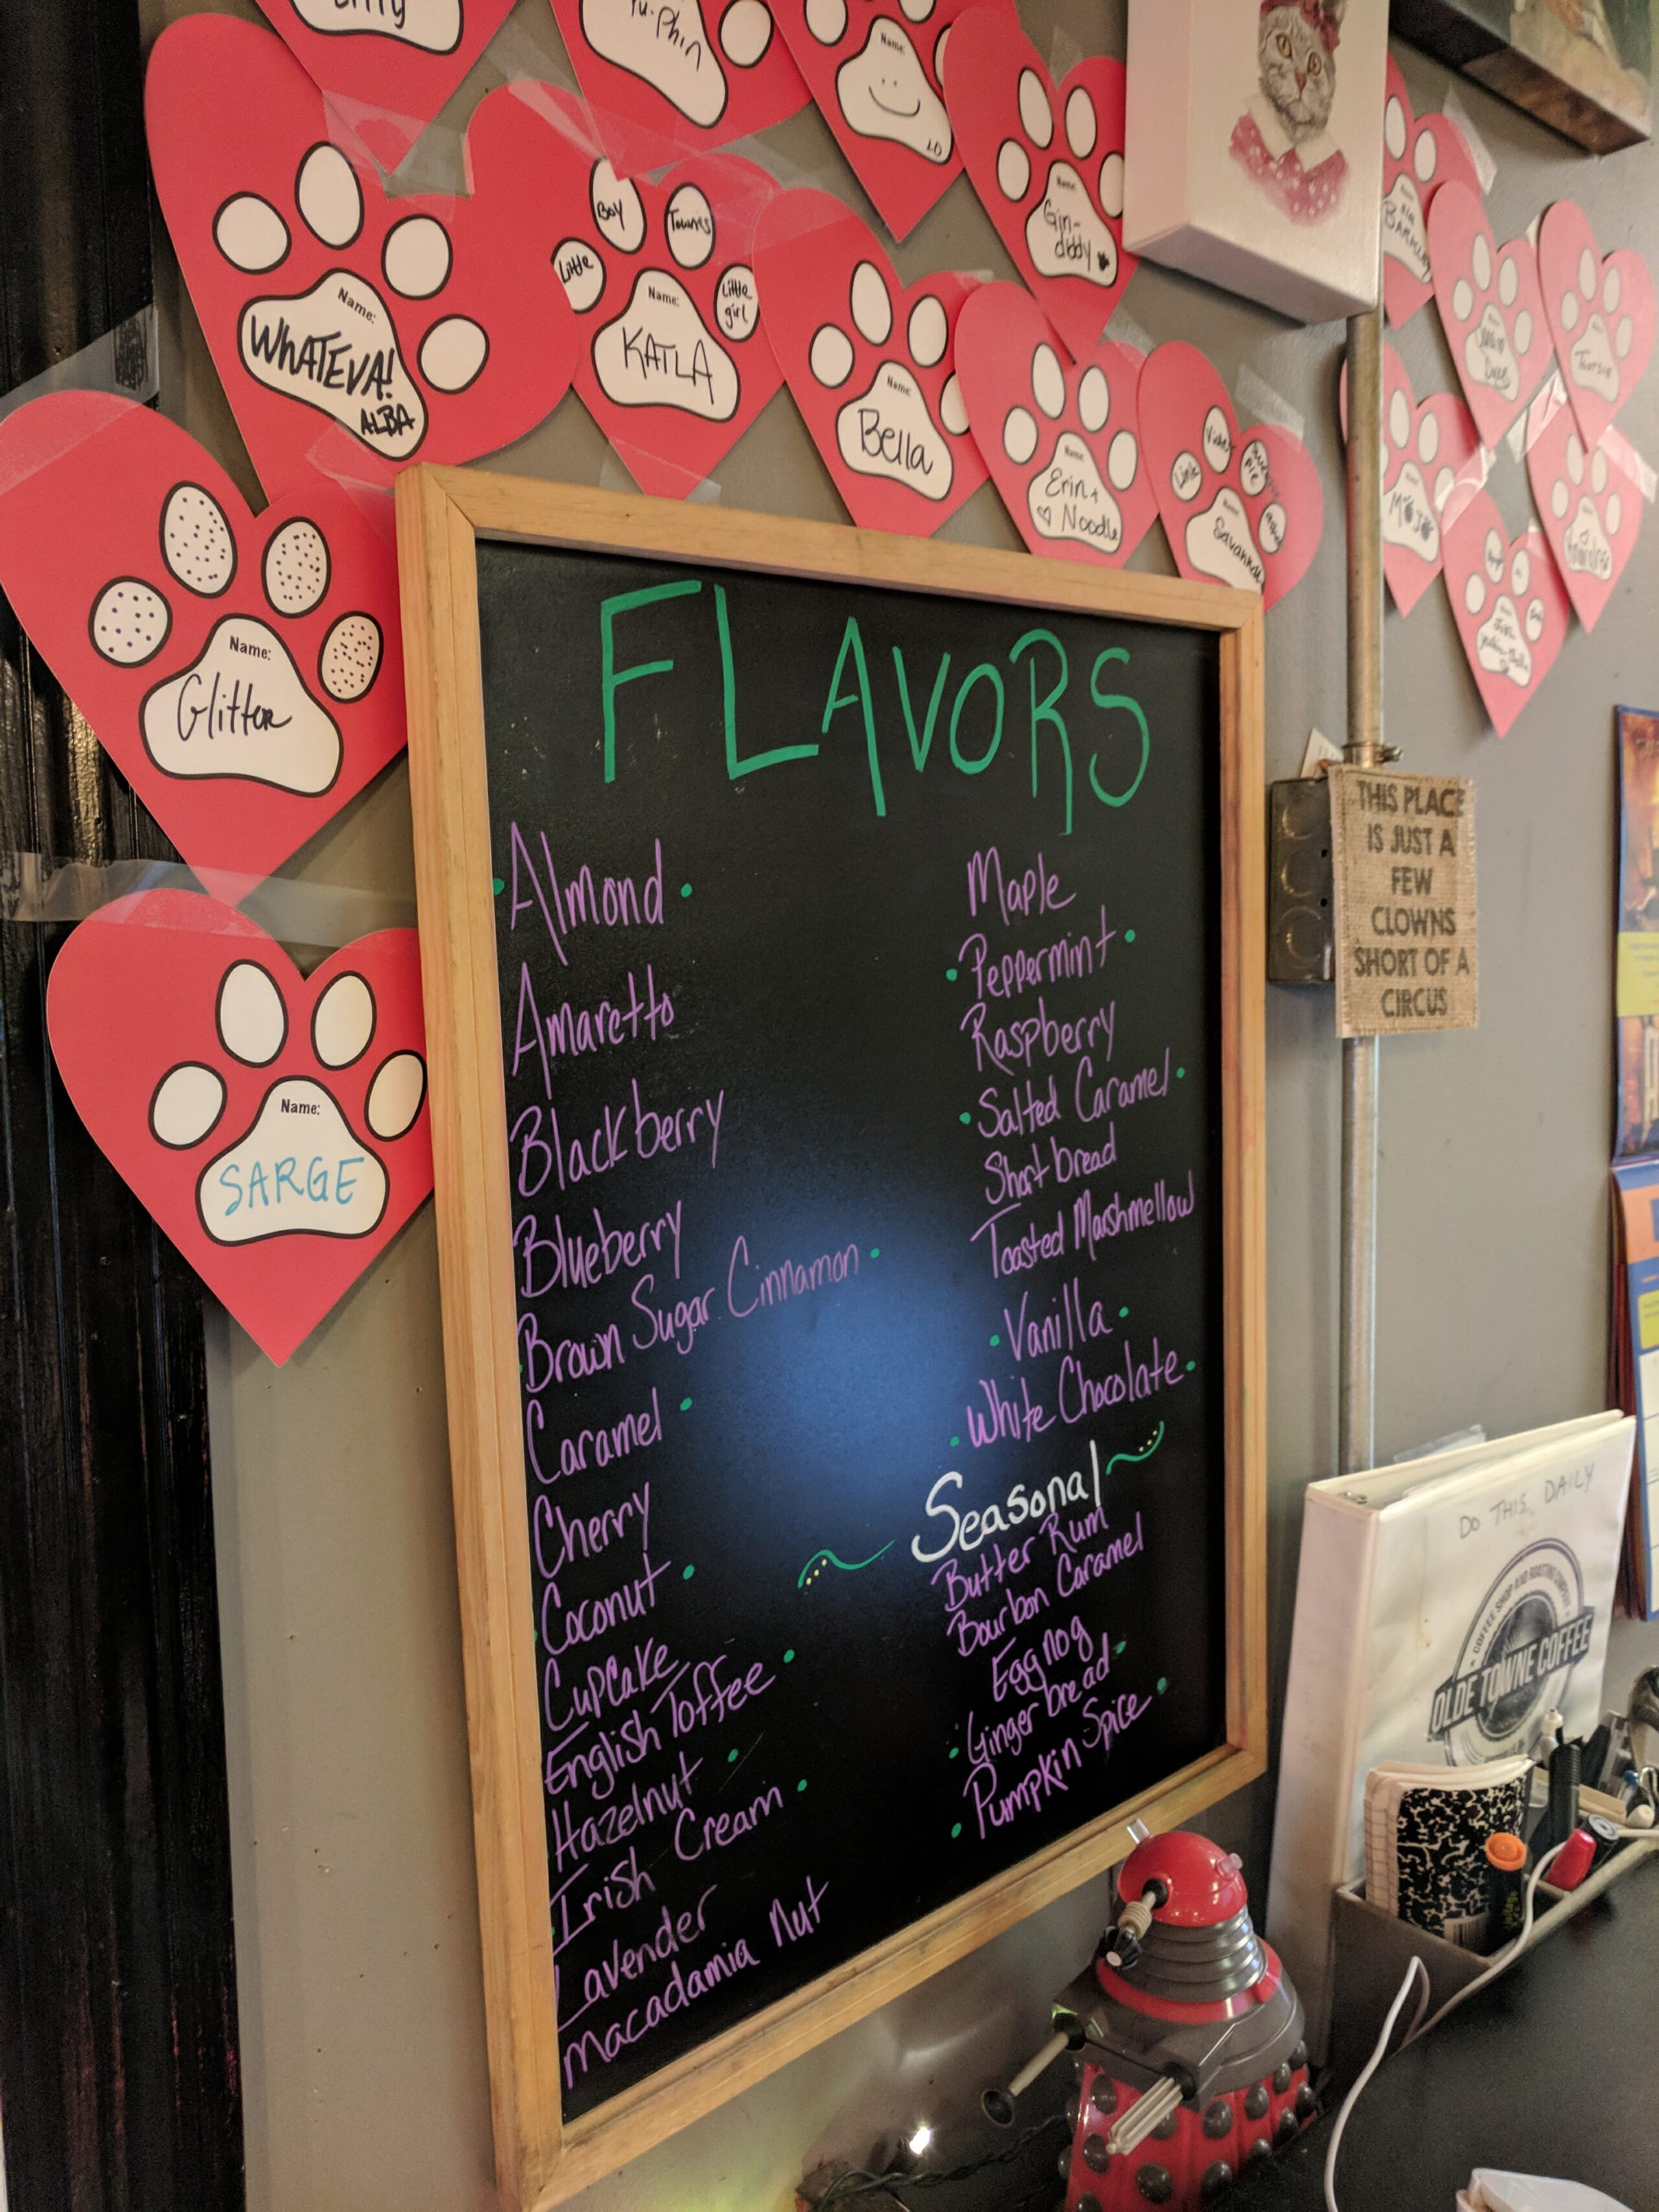 Name:
LD
Name:
Gin-
diddy
Name:
WHATEVA!
ALBA
Little
Boy
Townes
Little
girl
Name:
KATLA
Name:
Bella
Name:
Erin +
Noodle
Name:
Savannah
MOJO
Name:
Glitter
Name:
SARGE
FLAVORS
Almond
Amaretto
Blackberry
Blueberry
Brown Sugar Cinnamon
Caramel
Cherry
Coconut
Cupcake
English Toffee
Hazelnut
Irish Cream
Lavender
Macadamia Nut
Maple
Peppermint
Raspberry
Salted Caramel
Shortbread
Toasted Marshmellow
Vanilla
White Chocolate
Seasonal
Butter Rum
Bourbon Caramel
Eggnog
Gingerbread
Pumpkin Spice
THIS PLACE
IS JUST A
FEW
CLOWNS
SHORT OF A
CIRCUS
DO THIS DAILY
COFFEE SHOP AND ROASTING COMPANY
OLDE TOWNE COFFEE